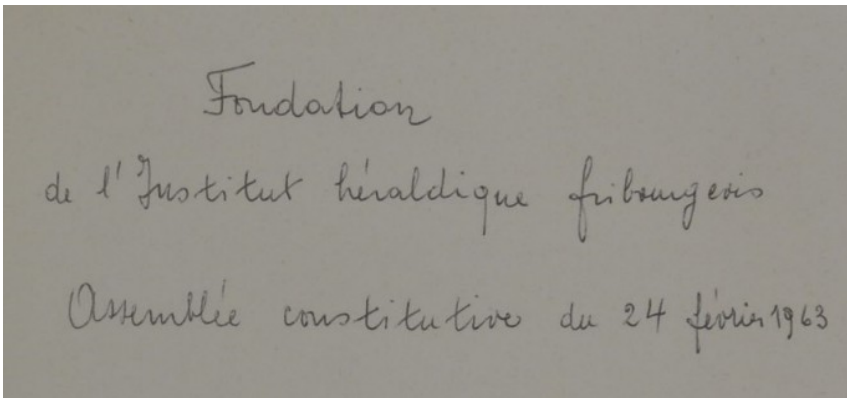 Fondation
de l'Institut héraldique fribourgeois
Assemblée constitutive du 24 février 1963